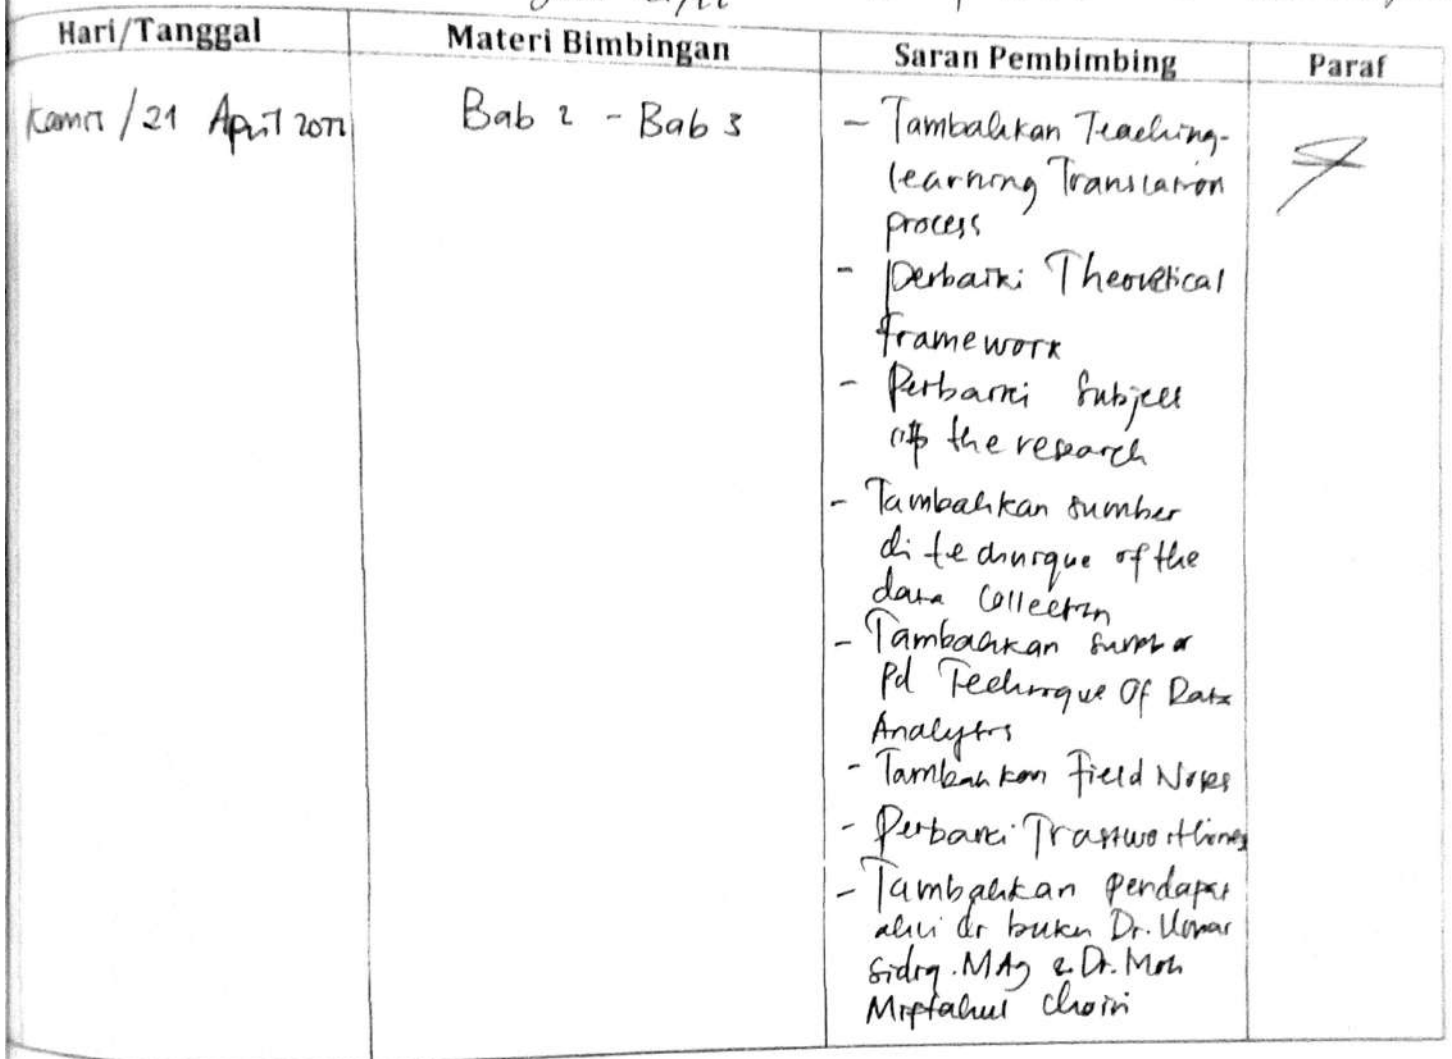 Hari/Tanggal Materi Bimbingan Saran Pembimbing Paraf
Kamis/21 April 2022 Bab 2 - Bab 3 - Tambahkan Teaching-
learning Translation
process
- Perbaiki Theoretical
Framework
- Perbaiki Subject
of the research
- Tambahkan sumber
di technique of the
data Collection
- Tambahkan sumber
Pd Technique Of Data
Analysis
- Tambahkan Field Notes
- Perbaiki Trastworthines
- Tambahkan pendapat
ahli dr buku Dr. Umar
Sidiq. MAg & Dr. Moh
Miftahul Choiri